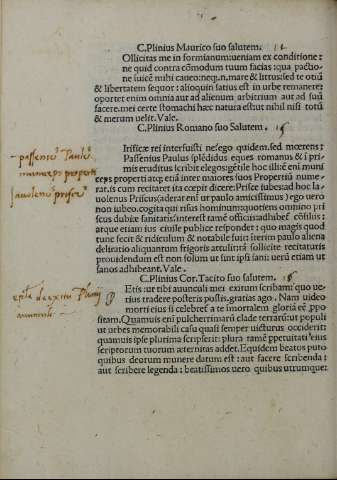 C.Plinius Maurico suo salutem.
Ollicitas me in formianum: ueniam ex conditione:
ne quid contra cōmodum tuum facias: qua pactio
ne iuicē mihi caueo: neq,n. mare & littus: sed te otiū
& libertatem sequor: alioquin satius est in urbe remanere:
oportet enim omnia aut ad alienum arbitrium aut ad suū
facere. mei certe stomachi hæc natura est ut nihil nisi totū
& merum uelit. Vale.
C.Plinius Romano suo Salutem.
Irificæ rei interfuisti ne fego quidem. sed mœrens:
Passenius Paulus splēdidus eques romanus & i pri
mis eruditus scribit elegos: gētile hoc illi: ē eni muni
ceps properti atq; etiā inter maiores suos Propertiū nume
rat. is cum recitaret ita cœpit dicere: Prisce iubes: ad hoc Ia
uolenus Priscus (aderat eni ut paulo amicissimus) ego uero
non iubeo. cogita qui risus hominum: quot ioci omnino pri
scus dubiæ sanitatis: interest tamē officiis: adhibet cōsiliis:
atque etiam ius ciuile publice respondet: quo magis quod
tunc fecit & ridiculum & notabile fuit: iterim paulo aliena
deliratio aliquantum frigoris attulit: tā sollicite recitaturis
prouidendum est non solum ut sint ipsi sani: uerū etiam ut
sanos adhibeant. Vale.
C.Plinius Cor. Tacito suo salutem.
Etis: ut tibi auunculi mei exitum scribam: quo ue
rius tradere posteris possis. gratias ago. Nam uideo
morti eius si celebreť a te imortalem gloriā eē ppo
sitam. Quamuis eni pulcherrimarū clade terrarū: ut populi
ut urbes memorabili casu quasi semper uicturus occiderit:
quamuis ipse plurima scripserit: plura tamē ppetuitati eius
scriptorum tuorum æternitas addet. Equidem beatos puto
quibus deorum munere datum est: aut facere scribenda:
aut scribere legenda: beatissimos uero quibus utrumque: